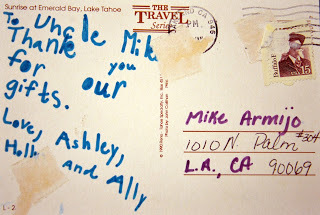 Sunrise at Emerald Bay, Lake Tahoe
THE
TRAVEL
Series
To Uncle Mike
Thank you
for our
gifts.
Love, Ashley,
and Ally
L-2
CA
P.M.
Buffalo Bill
15
Mike Armijo
1010 N. Palm #304
L.A., CA
90069